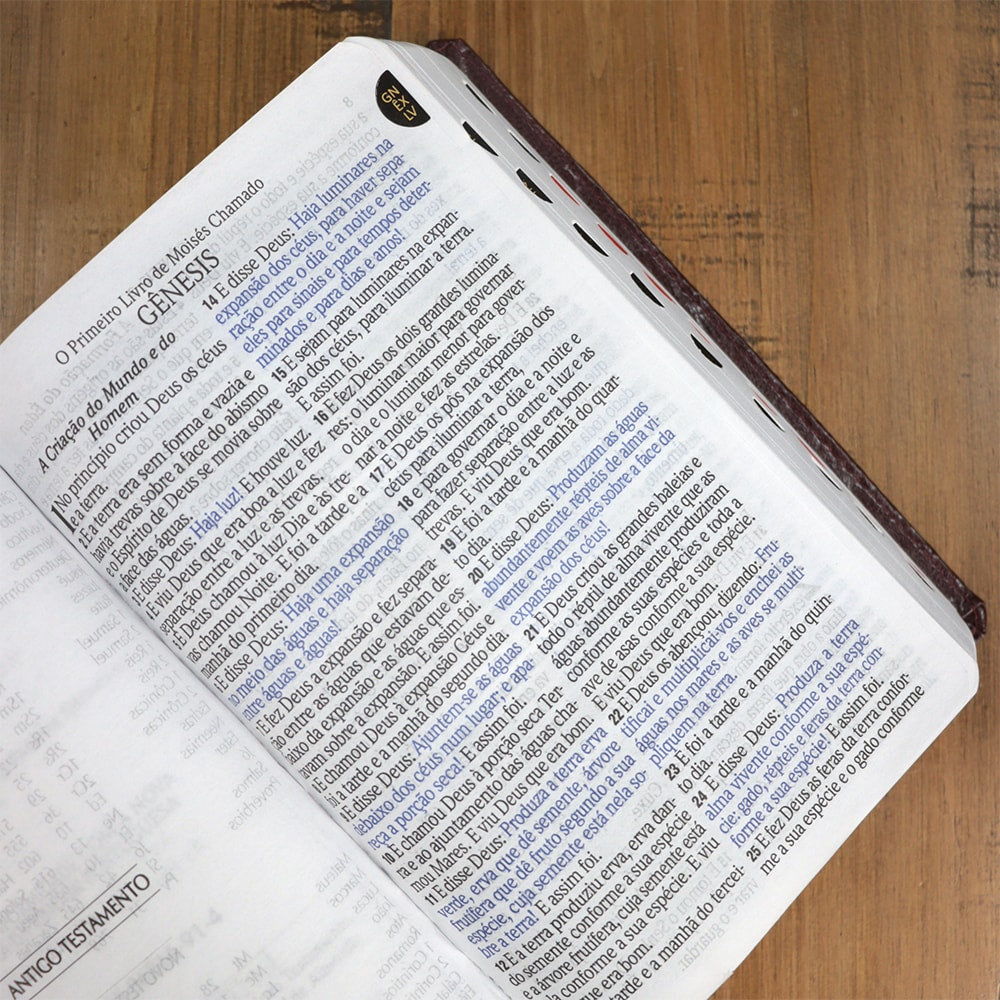 GN
ÊX
LV
O Primeiro Livro de Moisés Chamado
GÊNESIS
A Criação do Mundo e do
Homem
1 No princípio criou Deus os céus
e a terra.
E a terra era sem forma e vazia e
havia trevas sobre a face do abismo
o Espírito de Deus se movia sobre
face das águas.
E disse Deus: Haja luz! E houve luz.
E viu Deus que era boa a luz e fez
separação entre a luz e as trevas.
E Deus chamou à luz Dia e às tre-
vas chamou Noite. E foi a tarde e a
manhã do primeiro dia.
E disse Deus: Haja uma expansão
no meio das águas e haja separação
entre águas e águas!
E fez Deus a expansão e fez separa-
ção entre as águas que estavam de-
baixo da expansão e as águas que es-
tavam sobre a expansão. E assim foi.
E chamou Deus à expansão Céus e
foi a tarde e a manhã do segundo dia
E disse Deus: Ajuntem-se as águas
debaixo dos céus num lugar; e apa-
reça a porção seca! E assim foi.
10 E chamou Deus à porção seca Ter-
ra e ao ajuntamento das águas cha-
mou Mares. E viu Deus que era bom.
11 E disse Deus: Produza a terra erva
verde, erva que dê semente, árvore
frutífera que dê fruto segundo a sua
espécie, cuja semente está nela so-
bre a terra! E assim foi.
12 E a terra produziu erva, erva dan-
do semente conforme a sua espécie
e a árvore frutífera, cuja semente está
la conforme a sua espécie. E viu
que era bom.
tarde e a manhã do tercei-
14 E disse Deus: Haja luminares na
expansão dos céus, para haver sepa-
ração entre o dia e a noite e sejam
eles para sinais e para tempos deter-
minados e para dias e anos!
15 E sejam para luminares na expan-
são dos céus, para iluminar a terra.
E assim foi.
16 E fez Deus os dois grandes lumina-
res: o luminar maior para governar
o dia e o luminar menor para gover-
nar a noite e fez as estrelas.
17 E Deus os pôs na expansão dos
céus para iluminar a terra,
18 e para governar o dia e a noite e
para fazer separação entre a luz e as
trevas. E viu Deus que era bom.
19 E foi a tarde e a manhã do quar-
to dia.
20 E disse Deus: Produzam as águas
abundantemente répteis de alma vi-
vente e voem as aves sobre a face da
expansão dos céus!
21 E Deus criou as grandes baleias e
todo o réptil de alma vivente que as
águas abundantemente produziram
conforme as suas espécies e toda a
ave de asas conforme a sua espécie.
E viu Deus que era bom.
22 E Deus os abençoou, dizendo: Fru-
tificai e multiplicai-vos e enchei as
águas nos mares e as aves se multi-
pliquem na terra.
23 E foi a tarde e a manhã do quin-
to dia.
24 E disse Deus: Produza a terra
alma vivente conforme a sua espé-
cie: gado, répteis e feras da terra con-
forme a sua espécie! E assim foi.
25 E fez Deus as feras da terra confor-
me a sua espécie e o gado conforme
ANTIGO TESTAMENTO